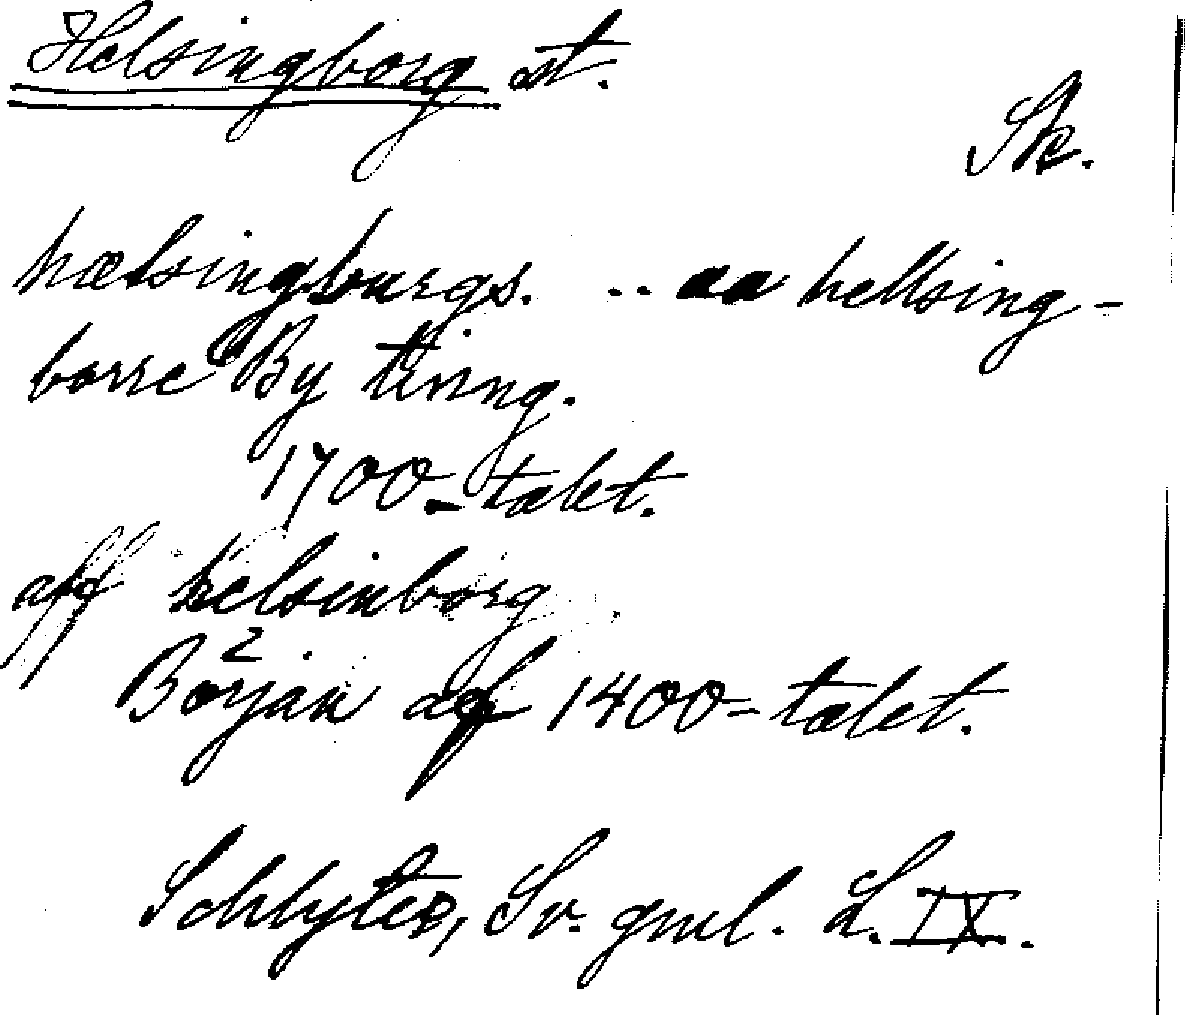 Helsingborg st.
Sk.
hælsingburgs. .. aa hellsing-
borre By tinng.
1700-talet.
aff helsinborg
2.
Början af 1400-talet.
Schlyter, Sv. gml. L. IX.